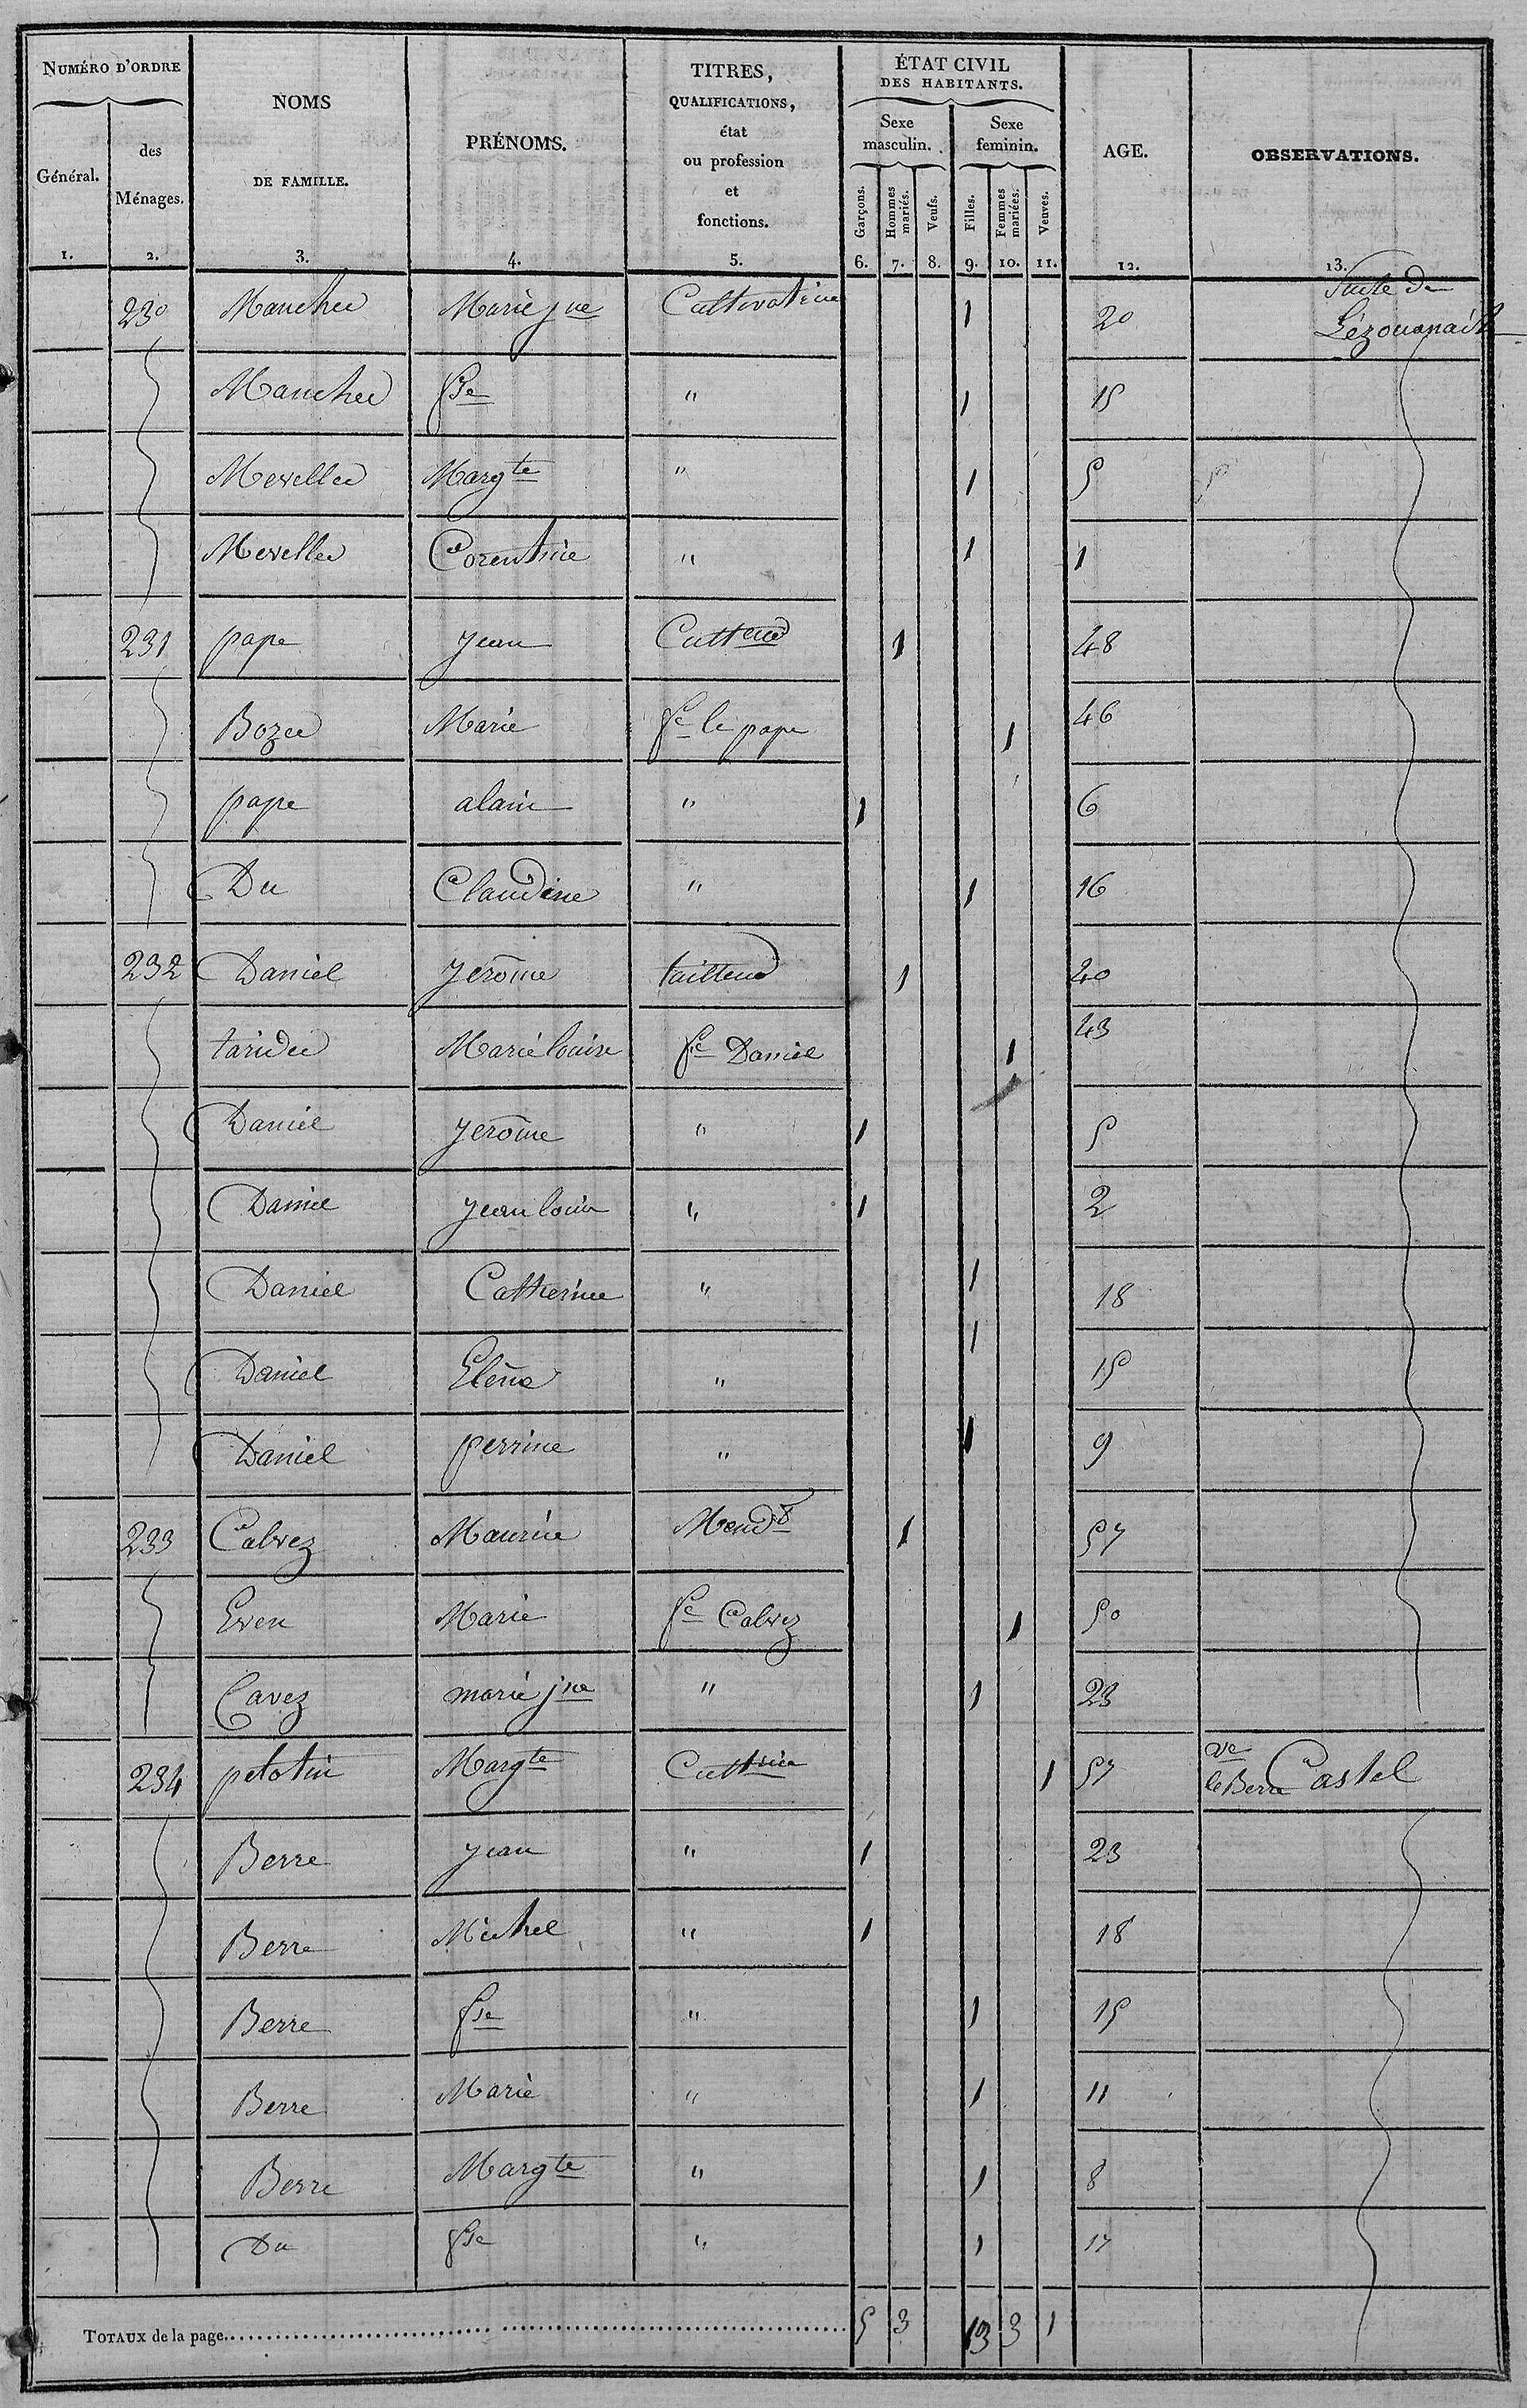 NUMÉRO D'ORDRE
Général.
des Ménages.
NOMS
DE FAMILLE.
PRÉNOMS.
TITRES,
QUALIFICATIONS,
état
ou profession
et
fonctions.
ÉTAT CIVIL
DES HABITANTS.
Sexe masculin.
Sexe feminin.
Garçons.
Hommes mariés.
Veufs.
Filles.
Femmes mariées.
Veuves.
AGE.
OBSERVATIONS.
1. 2. 3. 4. 5. 6. 7. 8. 9. 10. 11. 12. 13.
230 Manchec Marie jne Cultivatrice 1 20 Suite de
Manchec fse " 1 15
Mevellec Margte " 1 5
Mevellec Corentine " 1 1
231 pape jean Culteur 1 48
Bozec Marie fe le pape 1 46
pape alain " 1 6
Du Claudine " 1 16
232 Daniel jerôme tailleur 1 40
taridec Marie louise fe Daniel 1 43
Daniel jerôme " 1 5
Daniel jean louis " 1 2
Daniel Catherine " 1 18
Daniel Eléna " 1 15
Daniel perrine " 1 9
233 Calvez Maurice Mendt 1 57
Even Marie fe Calvez 1 50
Cavez marie jne " 1 23
234 pelotin Margte Cultrice 1 57 ve le Berre Castel
Berre jean " 1 23
Berre Michel " 1 18
Berre fse " 1 15
Berre Marie " 1 11
Berre Margte " 1 8
Du fse " 1 17
TOTAUX de la page 5 3 13 3 1